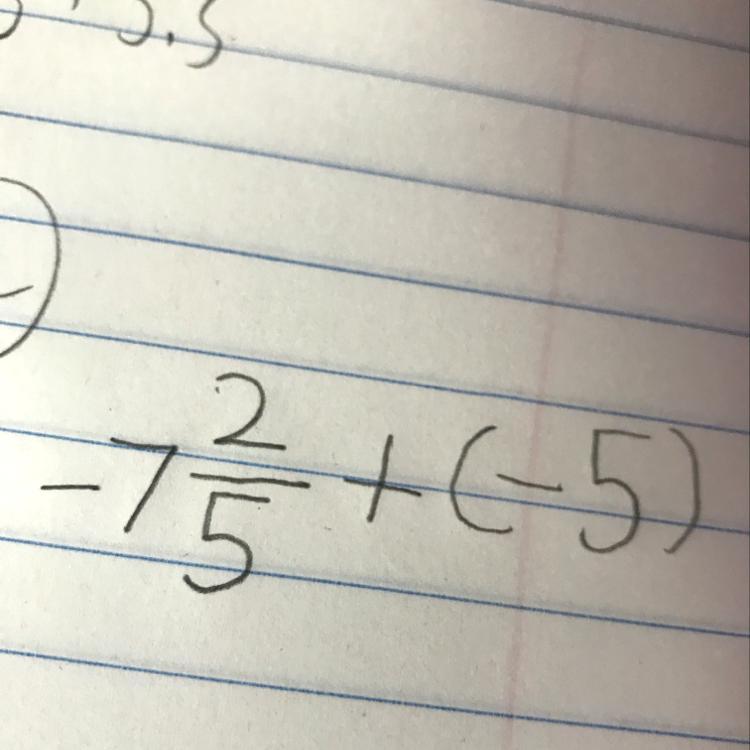 5.5
-7 2/5 + (-5)